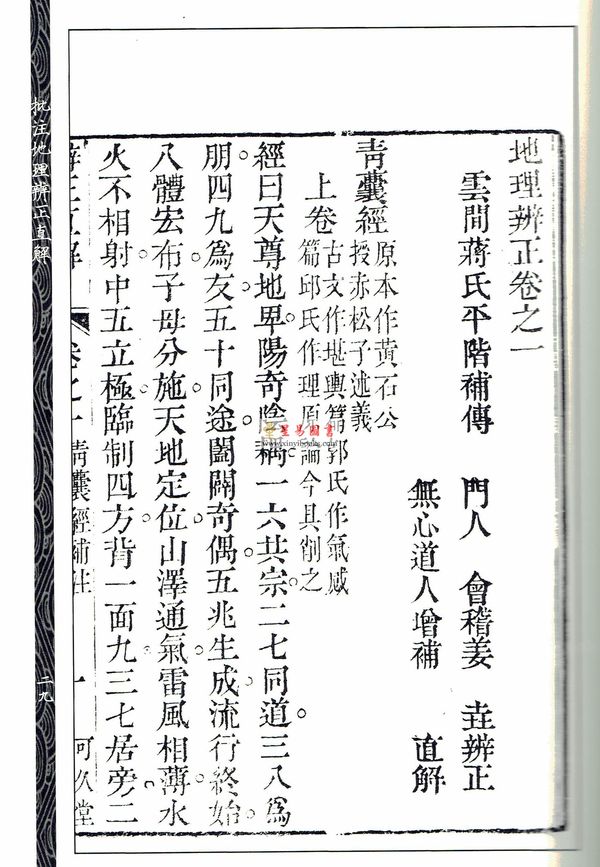 地理辨正卷之一
雲間蔣氏平階補傳 門人 會稽姜 垚辨正
無心道人增補 直解
青囊經 原本作黃石公
授赤松子述義
上卷 古文作堪輿篇郭氏作氣感
篇邱氏作理原論今具削之
經曰天尊地卑陽奇陰耦一六共宗二七同道三八為
朋四九為友五十同途闔闢奇偶五兆生成流行終始
八體宏布子母分施天地定位山澤通氣雷風相薄水
火不相射中五立極臨制四方背一面九三七居旁二
辨正直解 卷之一 青囊經補註 一 可久堂
批注地理辨正直解
二九
星易圖書
www.xinyibooks.com